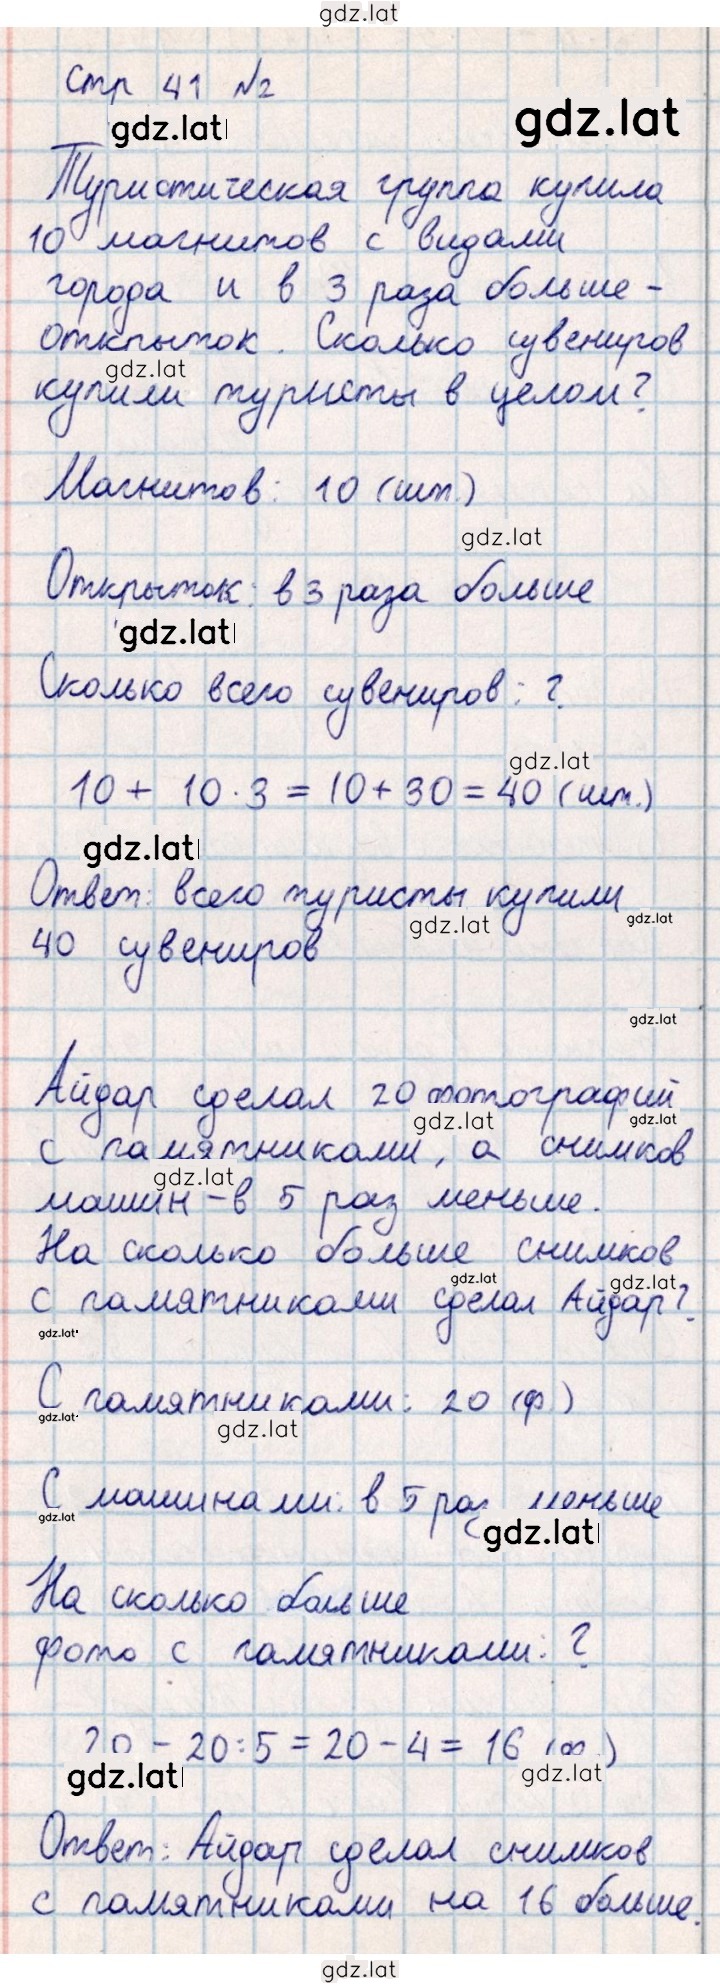 gdz.lat
стр 41 №2
gdz.lat
gdz.lat
Туристическая группа купила
10 магнитов с видами
города и в 3 раза больше -
открыток. Сколько сувениров
gdz.lat
купили туристы в целом?
Магнитов: 10 (шт.)
gdz.lat
Открыток: в 3 раза больше
gdz.lat
Сколько всего сувениров: ?
gdz.lat
10 + 10 · 3 = 10 + 30 = 40 (шт.)
gdz.lat
Ответ: всего туристы купили
gdz.lat
gdz.lat
40 сувениров
gdz.lat
Айдар сделал 20 фотографий
gdz.lat
gdz.lat
с памятниками, а снимков
gdz.lat
машин - в 5 раз меньше.
На сколько больше снимков
gdz.lat
gdz.lat
с памятниками сделал Айдар?
gdz.lat
С памятниками: 20 (ф.)
gdz.lat
gdz.lat
С машинами: в 5 раз меньше
gdz.lat
gdz.lat
На сколько больше
фото с памятниками: ?
20 - 20 : 5 = 20 - 4 = 16 (ф.)
gdz.lat
gdz.lat
Ответ: Айдар сделал снимков
с памятниками на 16 больше.
gdz.lat